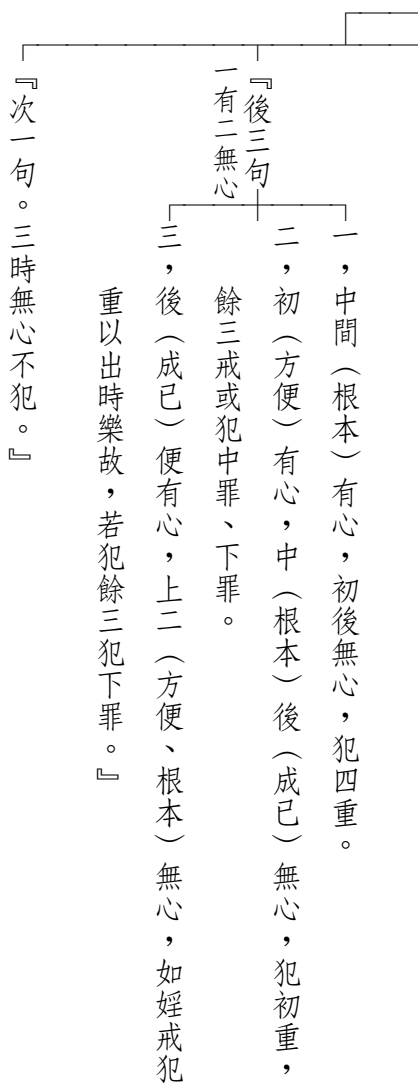 『後三句
一有二無心
一，中間（根本）有心，初後無心，犯四重。
二，初（方便）有心，中（根本）後（成已）無心，犯初重，
餘三戒或犯中罪、下罪。
三，後（成已）便有心，上二（方便、根本）無心，如婬戒犯
重以出時樂故，若犯餘三犯下罪。』
『次一句。三時無心不犯。』